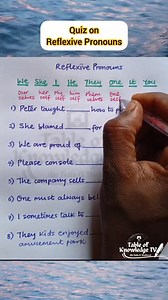 Quiz on
Reflexive Pronouns
Reflexive Pronouns
We She I He They one it You
our selves her self my self him self them selves one self
1) Peter taught ____ how to p
2) She blamed ____ for
3) We are proud of ____
4) Please console ____
5) The company sells ____
6) One must always be
7) I sometimes talk to ____
8) They kids enjoyed
amusement park
Table of
Knowledge TV